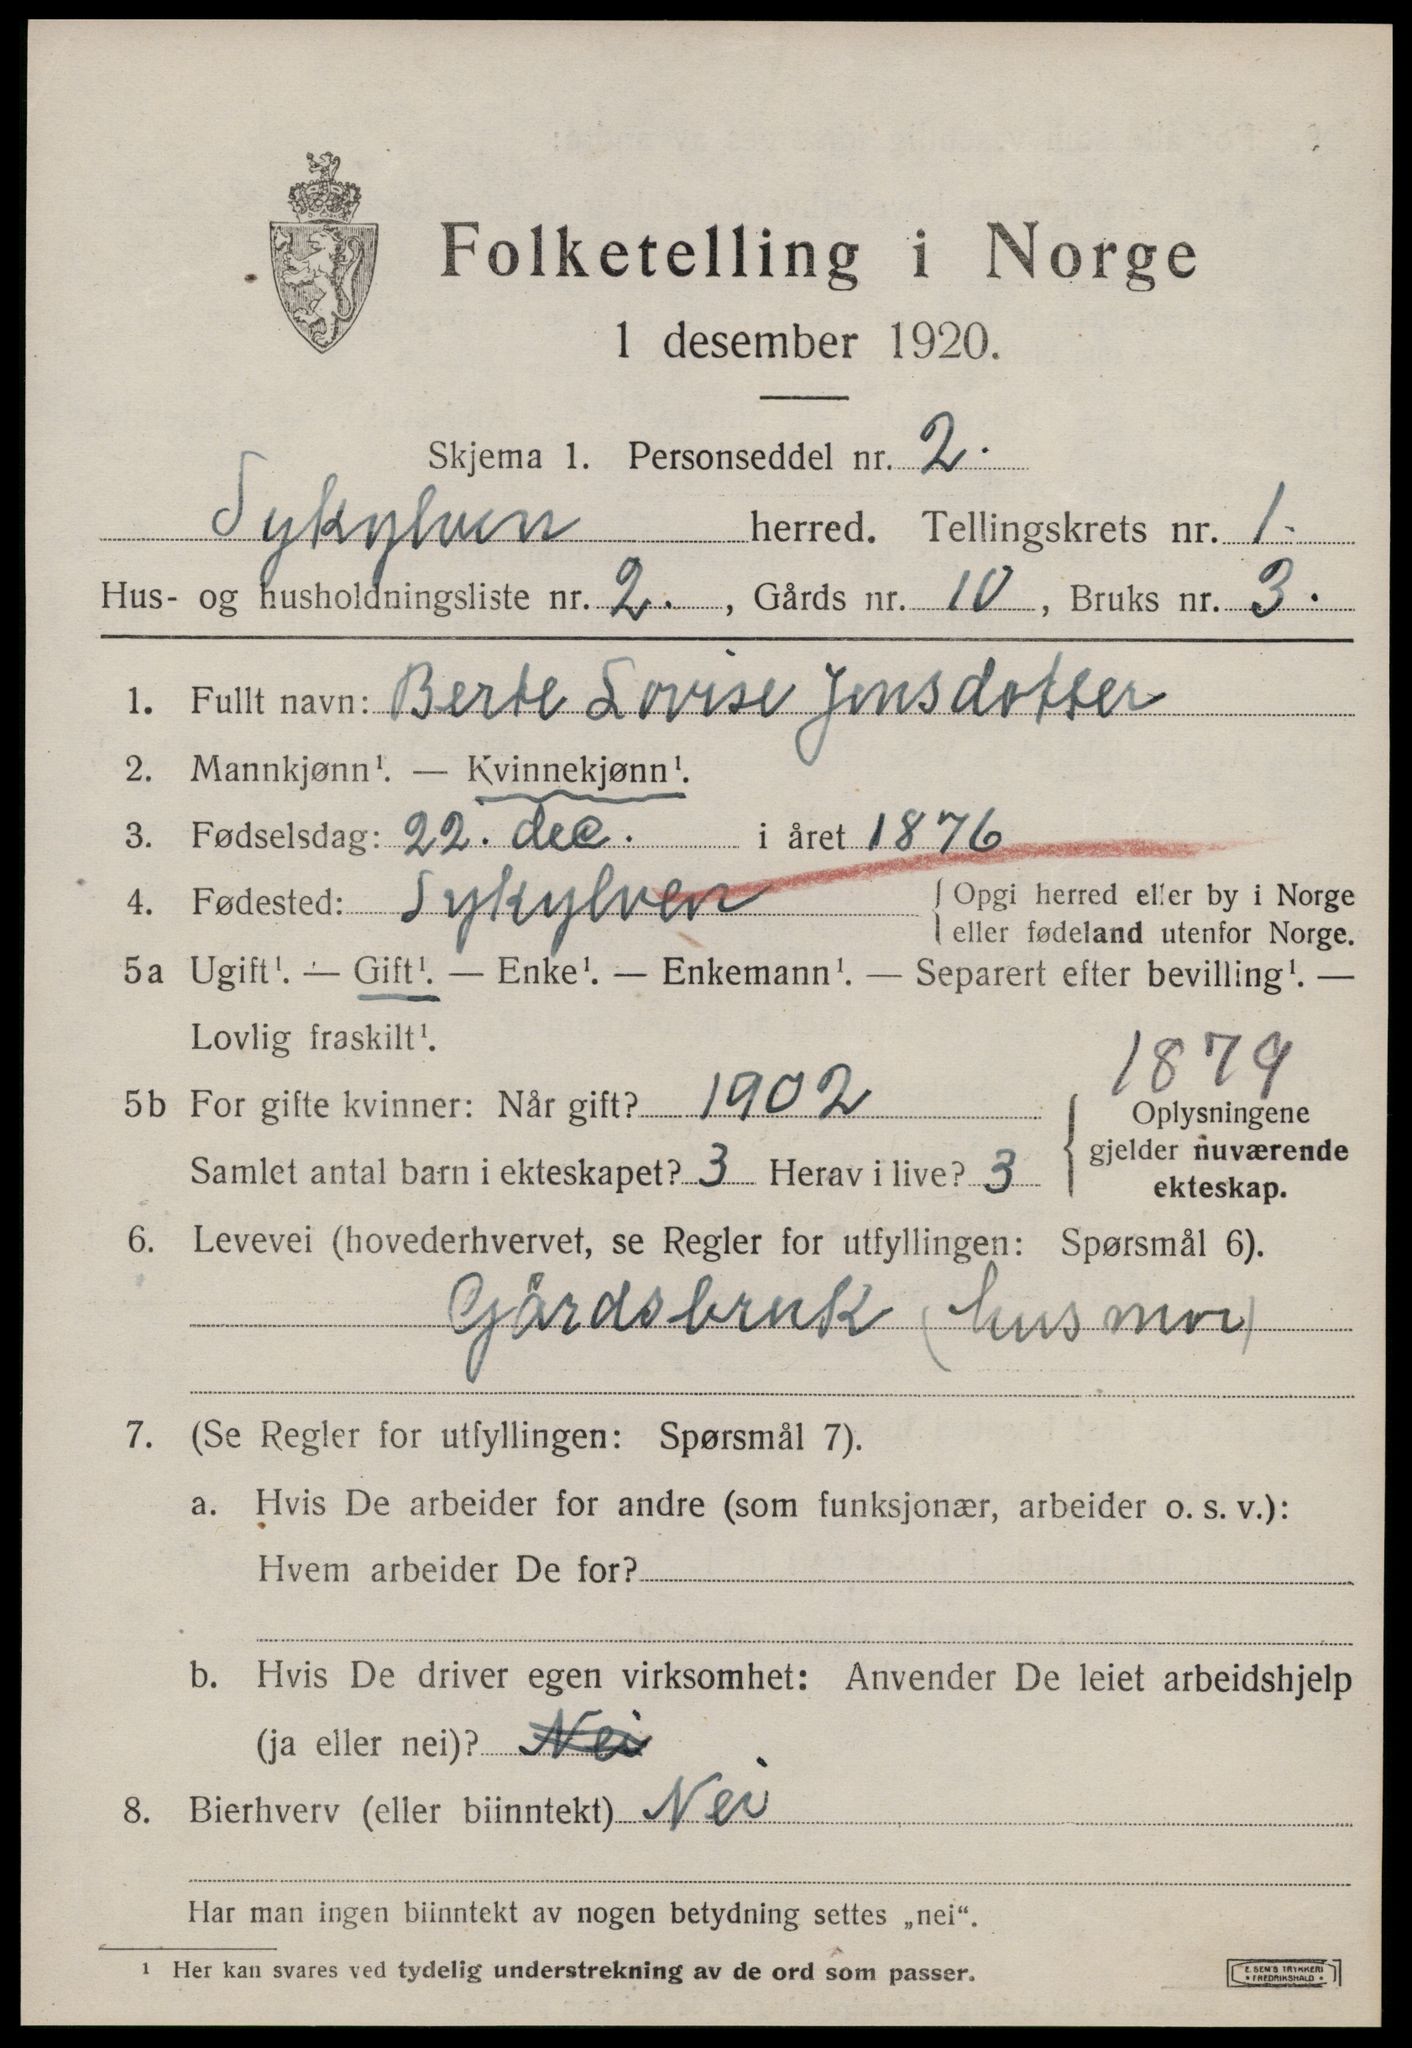 Folketelling i Norge
1 desember 1920.
Skjema 1. Personseddel nr. 2.
Sykylven herred. Tellingskrets nr. 1.
Hus- og husholdningsliste nr. 2. , Gårds nr. 10 , Bruks nr. 3.
1. Fullt navn: Berte Lovise Jensdotter
2. Mannkjønn¹. — Kvinnekjønn¹.
3. Fødselsdag: 22. dec. i året 1876
4. Fødested: Sykylven { Opgi herred eller by i Norge
eller fødeland utenfor Norge.
5a Ugift¹. — Gift¹. — Enke¹. — Enkemann¹. — Separert efter bevilling¹. —
Lovlig fraskilt¹.
1879
5b For gifte kvinner: Når gift? 1902
Samlet antal barn i ekteskapet? 3 Herav i live? 3
{ Oplysningene
gjelder nuværende
ekteskap.
6. Levevei (hovederhvervet, se Regler for utfyllingen: Spørsmål 6).
Gårdsbruk (husmor)
7. (Se Regler for utfyllingen: Spørsmål 7).
a. Hvis De arbeider for andre (som funksjonær, arbeider o. s. v.):
Hvem arbeider De for?
b. Hvis De driver egen virksomhet: Anvender De leiet arbeidshjelp
(ja eller nei)? Nei
8. Bierhverv (eller biinntekt) Nei
Har man ingen biinntekt av nogen betydning settes „nei“.
¹ Her kan svares ved tydelig understrekning av de ord som passer.
E. SEM'S TRYKKERI
• FREDRIKSHALD •